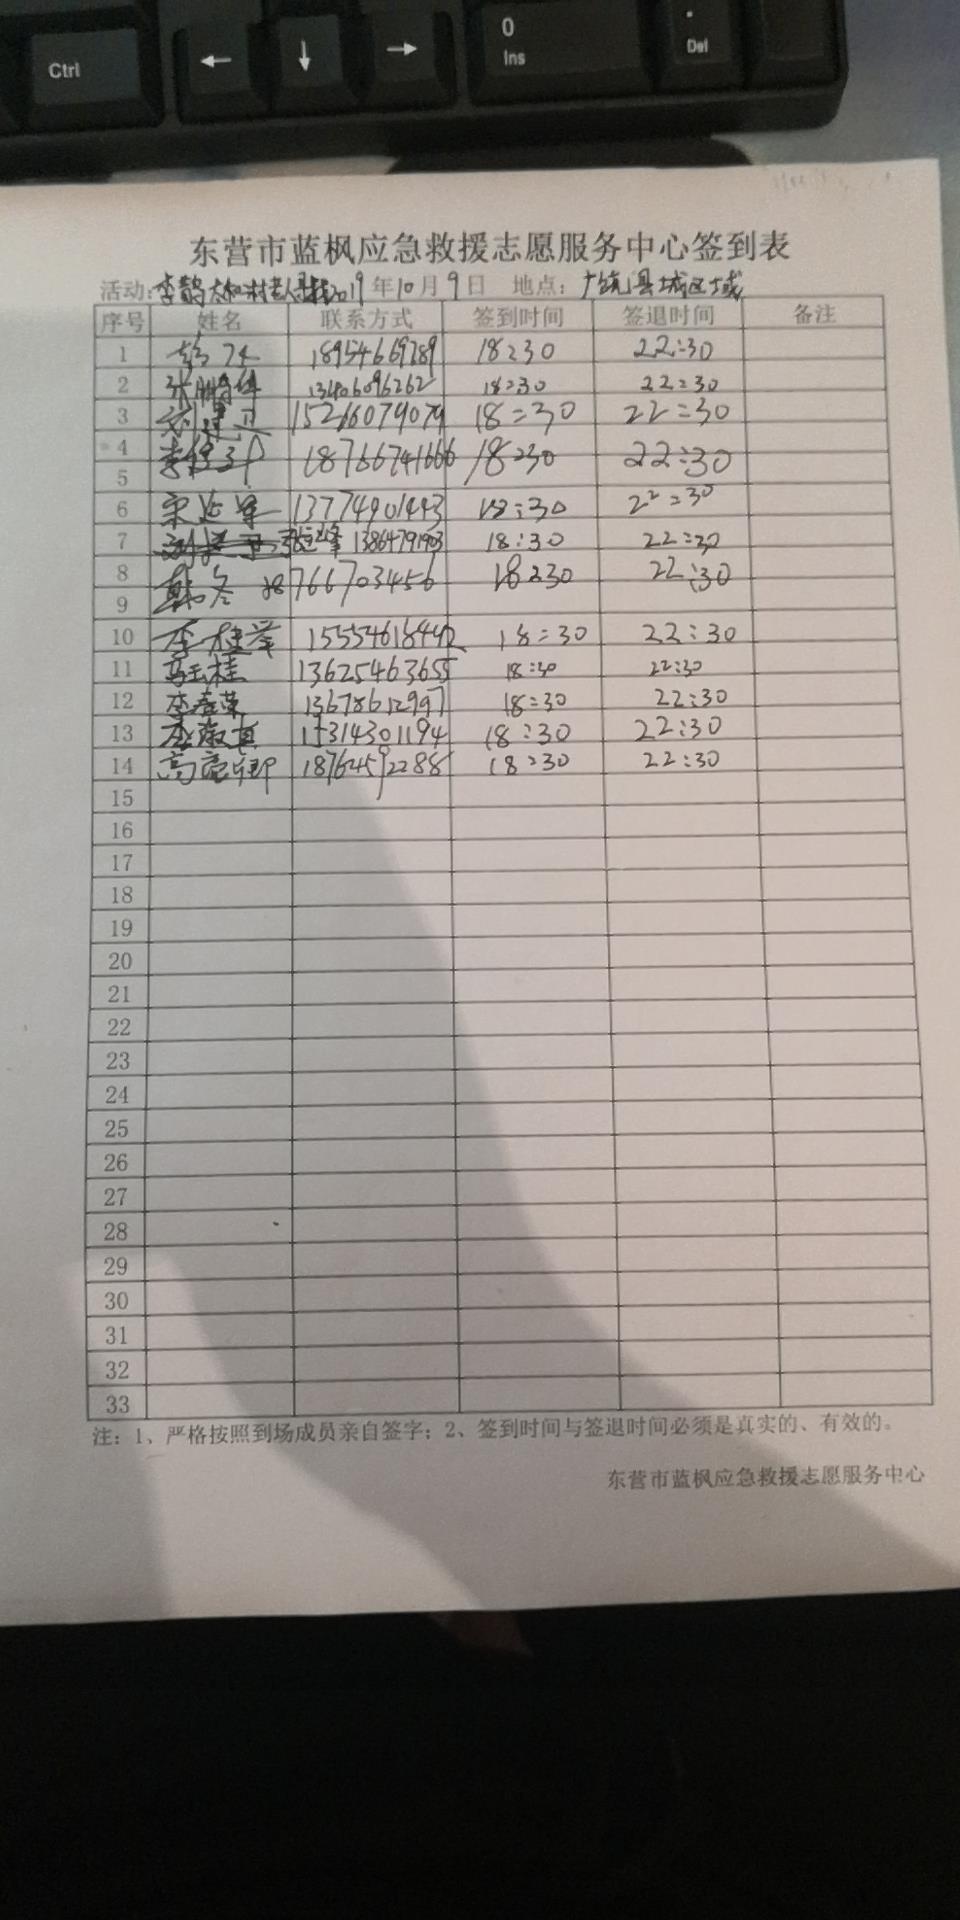 Ctrl
← ↓ →
0
Ins
.
Del
东营市蓝枫应急救援志愿服务中心签到表
活动: 李鹊大 村老人 2019年10月9日 地点: 广饶县城区域
序号 姓名 联系方式 签到时间 签退时间 备注
1 18954669789 18:30 22:30
2 张鹏 13406096262 18:30 22:30
3 刘建卫 15266079079 18:30 22:30
4 李 18766741666 18:30 22:30
5
6 宋延军 13774901443 18:30 22:30
7 13864791903 18:30 22:30
8 韩冬 18766703456 18:30 22:30
9
10 李桂举 15554618442 18:30 22:30
11 马玉桂 13625463655 18:30 22:30
12 李春荣 13678612997 18:30 22:30
13 李 15314301194 18:30 22:30
14 高 卿 18764592288 18:30 22:30
15
16
17
18
19
20
21
22
23
24
25
26
27
28
29
30
31
32
33
注: 1、严格按照到场成员亲自签字; 2、签到时间与签退时间必须是真实的、有效的。
东营市蓝枫应急救援志愿服务中心